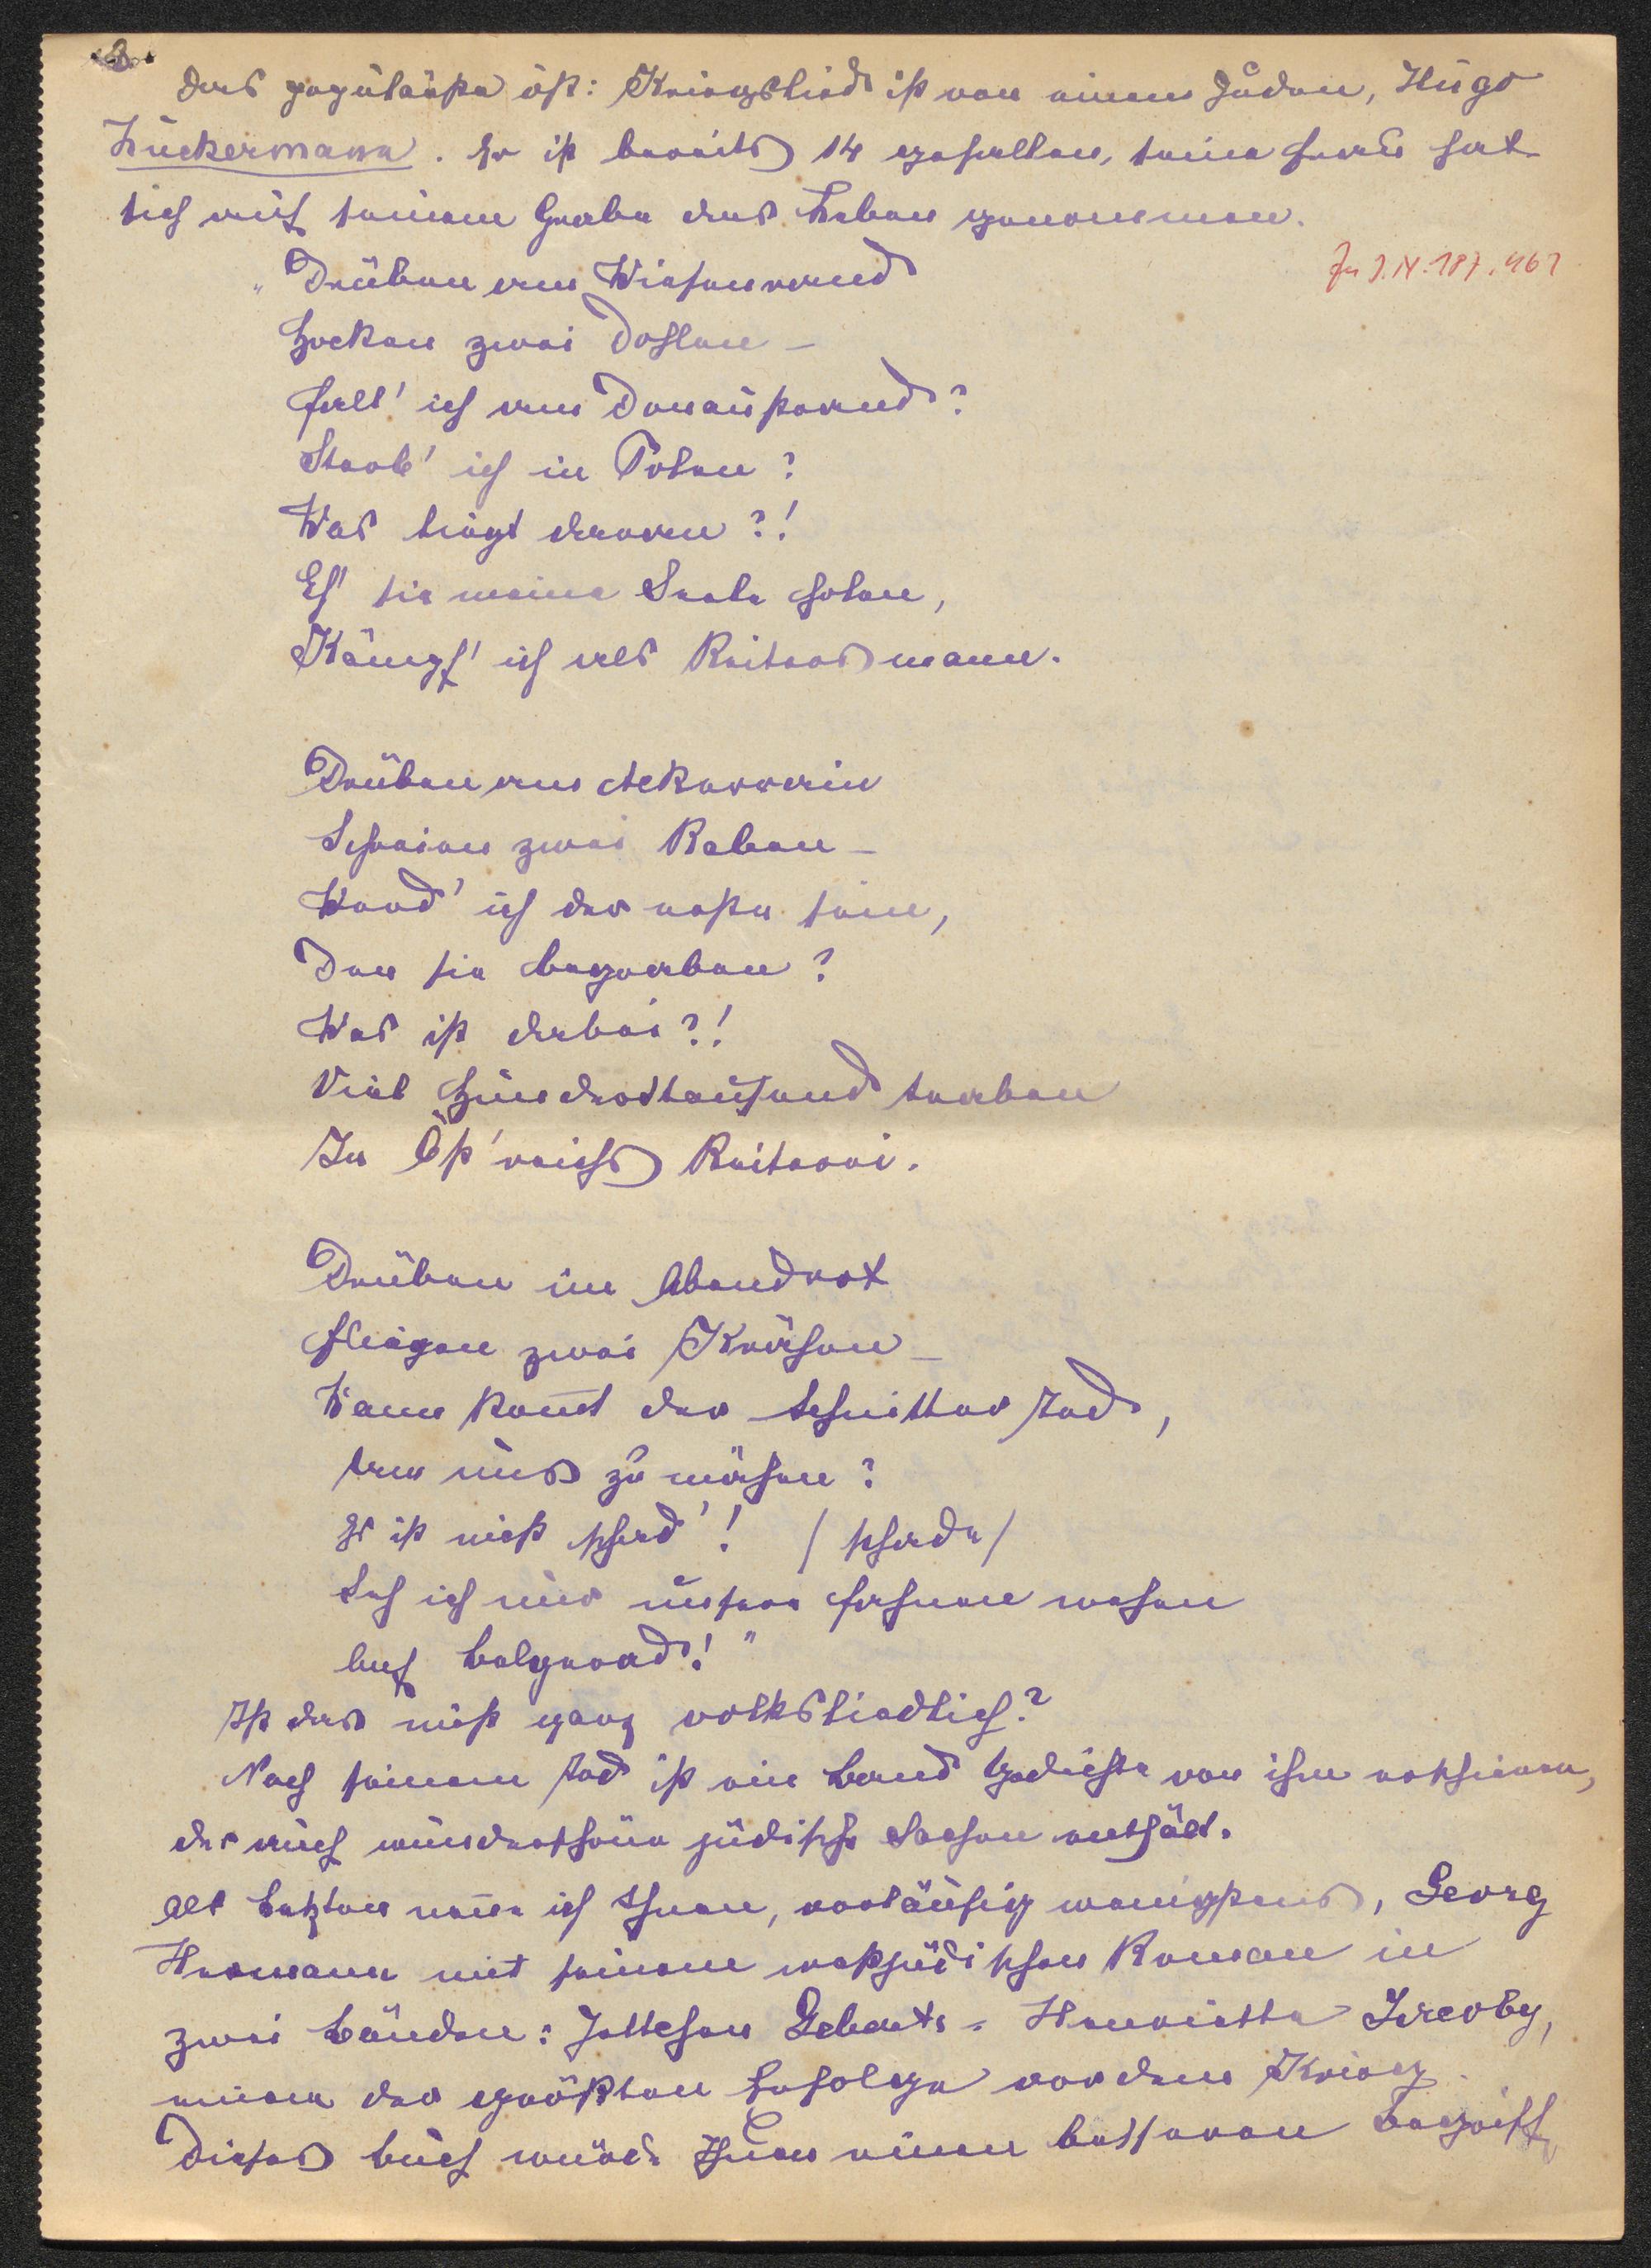 3.
Das populärste öst: Kriegslied ist von einem Juden, Hugo
Zuckermann. Er ist bereits 14 gefallen, seine Frau hat
sich auf seinem Grabe das Leben genommen.
Zu J.N. 187.461
„Drüben am Wiesenrand
Hocken zwei Dohlen –
Fall' ich am Donaustrand?
Sterb' ich in Polen?
Was liegt daran?!
Eh' sie meine Seele holen,
Kämpf' ich als Reitersmann.
Drüben am Ackerrain
Schreien zwei Raben –
Werd' ich der erste sein,
Den sie begraben?
Was ist dabei?!
Viel Hunderttausend traben
In Öst'reichs Reiterei.
Drüben im Abendrot
Fliegen zwei Krähen –
Wann kom̅t der Schnitter Tod,
um uns zu mähen?
Es ist nicht schad'! /schade/
Seh ich nur unsere Fahnen wehen
Auf Belgerad!"
Ist das nicht ganz volksliedlich?
Nach seinem Tod ist ein Band Gedichte von ihm erschienen,
der auch wunderschöne jüdische Sachen enthält.
Als Letzten nen̅e ich Ihnen, vorläufig wenigstens, Georg
Hermann mit seinem westjüdischen Roman in
zwei Bänden: Jettchen Gebert - Henriette Jacoby,
einen der größten Erfolge vor dem Krieg.
Dieses Buch würde Ihnen einen besseren Begriff